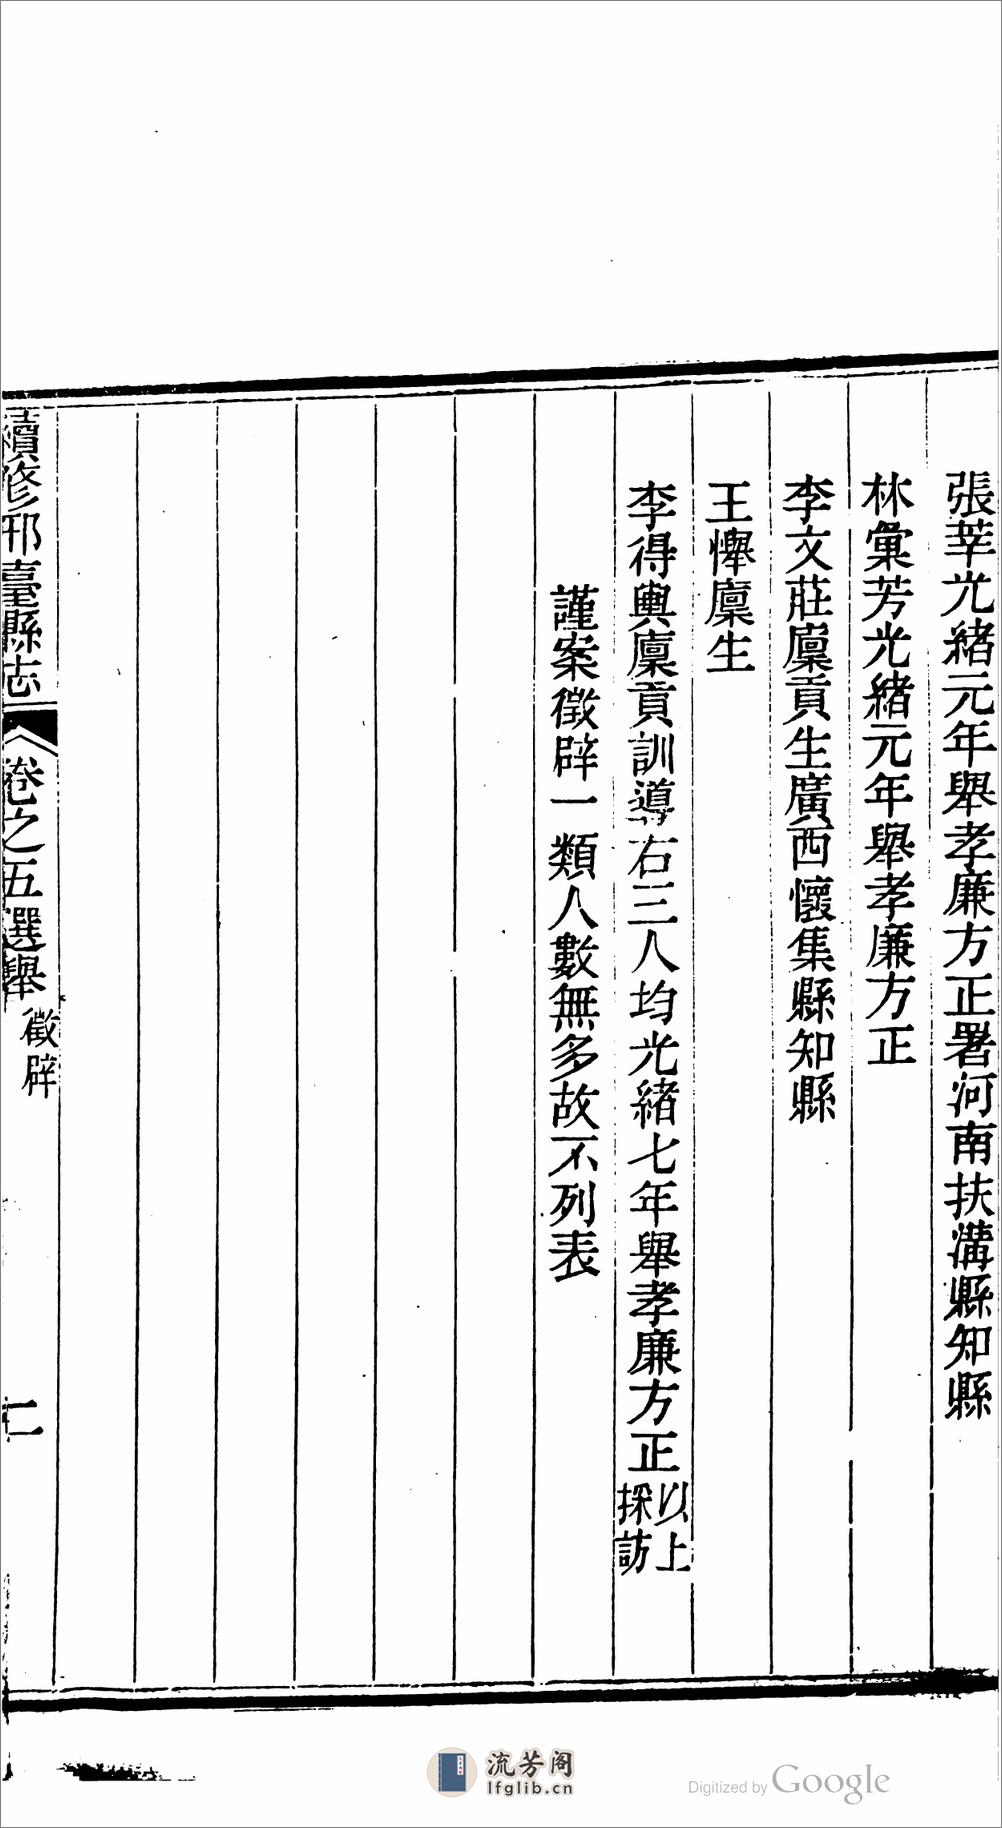 張莘光緒元年舉孝廉方正署河南扶溝縣知縣
林彙芳光緒元年舉孝廉方正
李文莊廩貢生廣西懷集縣知縣
王㦛廩生
李得輿廩貢訓導右三人均光緒七年舉孝廉方正以上採訪
謹案徵辟一類人數無多故不列表
續修邢臺縣志 卷之五選舉 徵辟 二
流芳阁
lfglib.cn
Digitized by Google